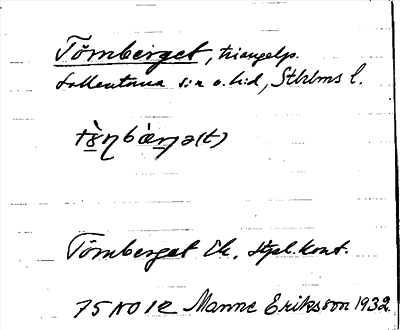 Törnberget, triangelp.
Sollentuna s:n o. h:d, Sthlms l.
Törnberget Ek. kont.
75 NO 12 Manne Eriksson 1932.